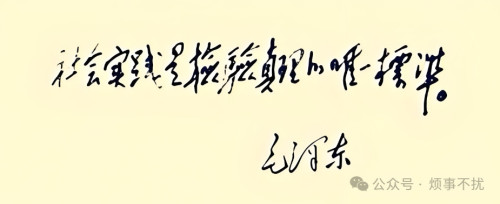 社会实践是檢驗真理的唯一標準。
毛泽东
公众号·烦事不扰